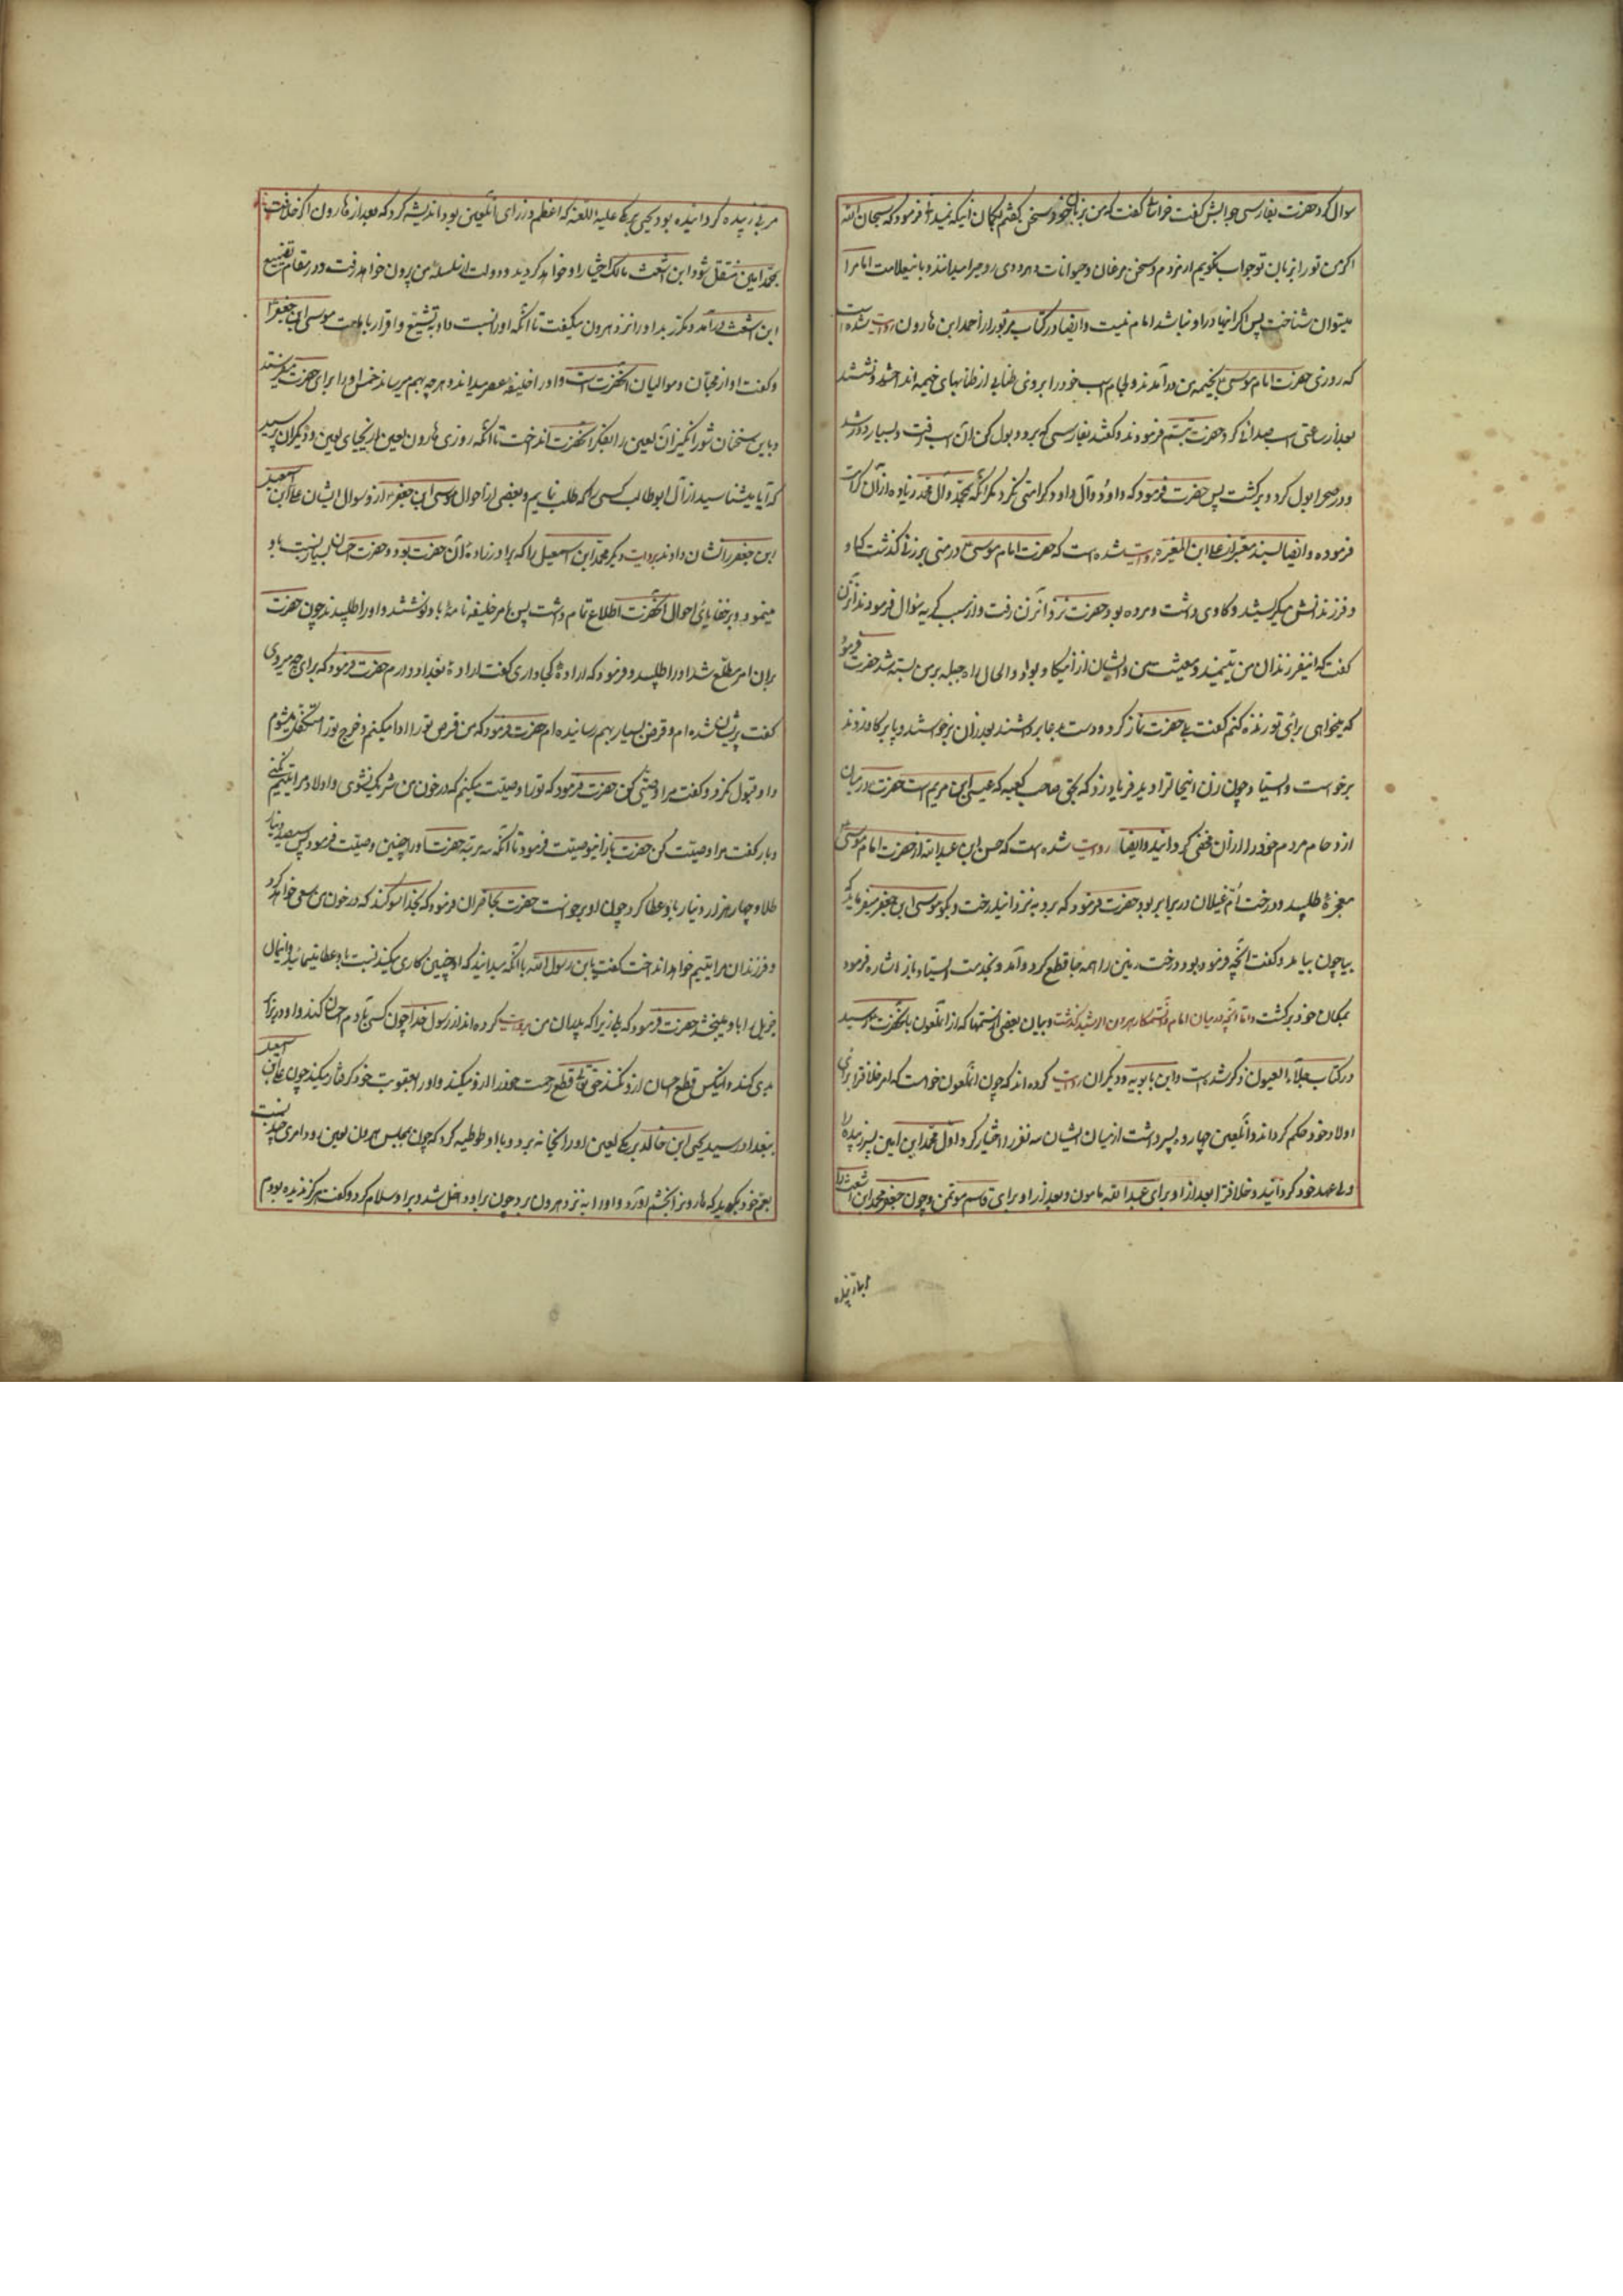 سوال کرد حضرت بفارسی جوابش گفت خراسانی گفت که من بزبان خود سخن نگفتم بگمان اینکه نمیدانی فرمود که سبحان الله
اگر من تو را بزبان تو جواب نگویم
میتوان شناخت پس اگر اینها در او نباشد امام نیست و ایضا در کتاب مزبور از احمد ابن هارون روایت شده است
که روزی حضرت امام موسی بخیمه من درآمدند و لجام اسب خود را بر وی طنابی از طنابهای خیمه انداختند و نشستند
بعد از ساعتی اسب صدائی کرد حضرت تبسم فرمودند و گفتند بفارسی که برو و بول کن آن اسب رفت و بسیار دور شد
و در صحرا بول کرد و برگشت پس حضرت فرمود که داود و آل داود کرامتی نکرد مگر آنکه بمحمد و آل محمد زیاده از آن کرامت
فرموده و ایضا بسند معتبر از علی ابن المغیره روایت شده است که حضرت امام موسی در منی بر زنی گذشت که او
و فرزندانش میگریستند و گاوی داشت و مرده بود حضرت نزد آنزن رفت و از سبب گریه سؤال فرمودند آنزن
گفت که اینفرزندان من یتیمند و معیشت من و ایشان از این گاو بود و الحال راه حیله بر من بسته شد حضرت فرمود
که میخواهی برای تو زنده کنم گفت بلی حضرت نماز کرد و دست بدعا برداشتند بعد از آن برخواستند و پا بر گاو زدند
برخواست و ایستاد چون زن اینحال را دید فریاد زد که بحق صاحب کعبه که عیسی ابن مریم است حضرت در میان
ازدحام مردم خود را از آن مخفی گردانید و ایضا روایت شده است که حسن ابن عبدالله از حضرت امام موسی
معجزه طلبید و درخت ام غیلان در برابر بود حضرت فرمود که برو به نزد این درخت و بگو موسی ابن جعفر میفرماید که
بیا چون بیامد و گفت آنچه فرموده بود درخت زمین را همه جا قطع کرد و آمد و بخدمت ایستاد باز اشاره فرمود
بمکان خود برگشت و اما آنچه در میان امام و ستمکار هرون الرشید گذشت و بیان بعضی از ستمها که از آنملعون بآنحضرت رسید
در کتاب جلاء العیون ذکر شده است و ابن بابویه و دیگران روایت کرده اند که چون آنملعون خواست که امر خلافرا برای
اولاد خود محکم گرداند و آنلعین چهارده پسر داشت از میان ایشان سه نفر را اختیار کرد اول محمد امین پسر زبیده را
ولی عهد خود گردانید و خلافرا بعد از او برای عبدالله مامون و بعد از او برای قاسم موتمن و چون جعفر محمد ابن اشعث را
مربی زبیده گردانیده بود یحیی برمکی علیه اللعنه که اعظم وزرای آنلعین بود اندیشه کرد که بعد از هارون اگر خلافت
بمحمد امین منتقل شود ابن اشعث مالک اختیار او خواهد گردید و دولت از سلسله من بیرون خواهد رفت و در مقام تضییع
ابن اشعث درآمد و مکرر بد او را نزد هرون میگفت تا آنکه او را نسبت داد به تشیع و اقرار بامامت موسی ابن جعفر
و گفت او از محبان و موالیان آنحضرت است و او را خلیفه عصر میداند و هر چه بهم میرساند خمس او را برای حضرت میفرستد
و باین سخنان شورانگیز آن لعین را بفکر آنحضرت انداخت تا آنکه روزی هارون لعین از یحیای لعین و دیگران پرسید
که آیا میشناسید از آل ابوطالب کسی را که طلب نمایم و بعضی از احوال موسی ابن جعفر از او سوال ایشان علی ابن اسمعیل
ابن جعفر را نشان دادند بروایت دیگر محمد ابن اسمعیل را که برادر زاده آن حضرت بود و حضرت احسان بسیار نسبت باو
مینمود و بر خفایای احوال آنحضرت اطلاع تام داشت پس بامر خلیفه نامه باو نوشتند و او را طلبیدند چون حضرت
بر آن امر مطلع شد او را طلبید و فرمود که اراده کجا داری گفت اراده بغداد دارم حضرت فرمود که برای چه میروی
گفت پریشان شده ام و قرض بسیار بهم رسانیده ام حضرت فرمود که من قرض تو را ادا میکنم و خرج تو را متکفل میشوم
و او قبول نکرد و گفت مرا وصیتی کن حضرت فرمود که تو را وصیت میکنم که در خون من شریک نشوی و اولاد مرا یتیم نکنی
و باز گفت مرا وصیت کن حضرت باز اینوصیت فرمود تا آنکه سه مرتبه حضرت او را چنین وصیت فرمود پس سیصد دینار
طلا و چهار هزار دینار باو عطا کرد چون او برخواست حضرت بحاضران فرمود که بخدا سوگند که در خون من سعی خواهد کرد
و فرزندان مرا یتیم خواهد انداخت گفتند یابن رسول الله با آنکه میدانید که او چنین کاری میکند نسبت باو عطا مینمائید و اینمال
جزیل را باو میبخشید حضرت فرمود که بلی زیرا که پدران من روایت کرده اند از رسول خدا چون کسی با رحم احسان کند و او در برابر
بدی کند و اینکس قطع احسان از او نکند حق تعالی قطع رحمت خود را از او میکند و او را بعقوبت خود گرفتار میکند چون علی ابن اسمعیل
ببغداد رسید یحیی ابن خالد برمکی لعین او را بخانه برد و با او توطیه کرد که چون بمجلس هرون لعین رود امری چند نسبت
بعم خود بگوید که هارونرا بخشم آورد و او را به نزد هرون برد چون بر او داخل شد و بر او سلام کرد و گفت هرگز ندیده بودم